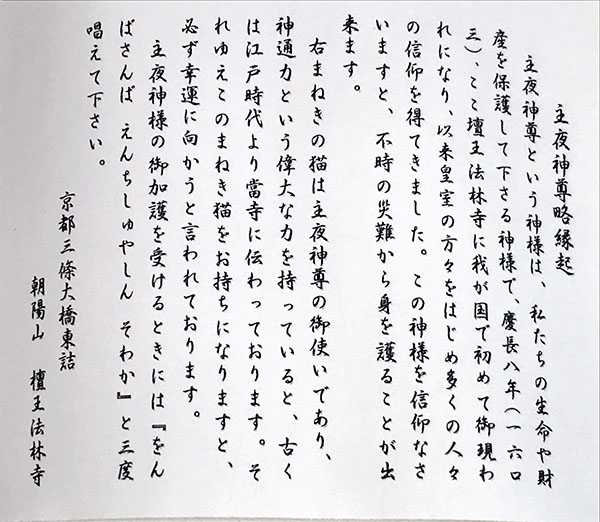 主夜神尊略縁起
主夜神尊という神様は、私たちの生命や財
産を保護して下さる神様で、慶長八年(一六〇
三)、ここ壇王法林寺に我が国で初めて御現わ
れになり、以来皇室の方々をはじめ多くの人々
の信仰を得てきました。この神様を信仰なさ
いますと、不時の災難から身を護ることが出
来ます。
右まねきの猫は主夜神尊の御使いであり、
神通力という偉大な力を持っていると、古く
は江戸時代より當寺に伝わっております。そ
れゆえこのまねき猫をお持ちになりますと、
必ず幸運に向かうと言われております。
主夜神様の御加護を受けるときには『をん
ばさんば えんちしゅやしん そわか』と三度
唱えて下さい。
京都三條大橋東詰
朝陽山 檀王法林寺